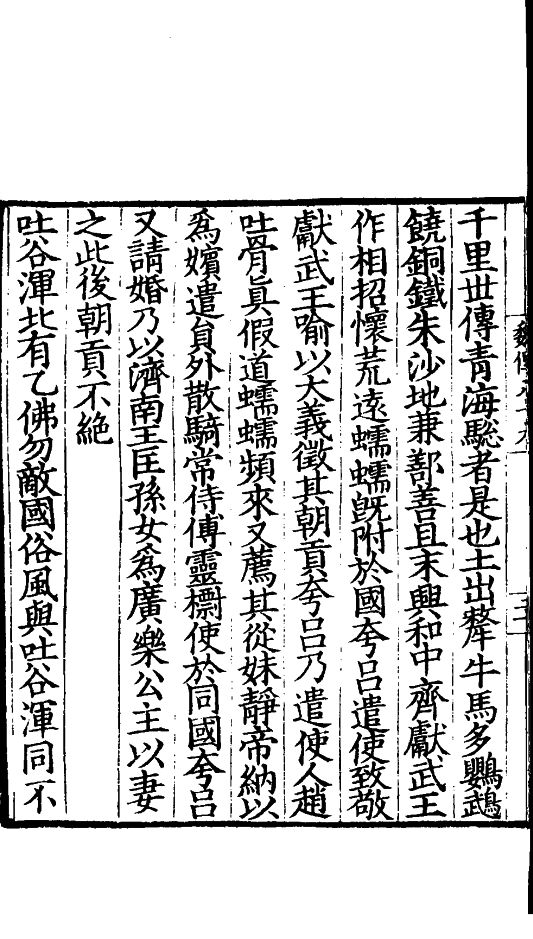 千里世傳青海驄者是也土出犛牛馬多鸚鵡
饒銅鐵朱沙地兼鄯善且末興和中齊獻武王
作相招懷荒遠蠕蠕旣附於國夸呂遣使致敬
獻武王喻以大義徵其朝貢夸呂乃遣使人趙
吐骨眞假道蠕蠕頻來又薦其從妹靜帝納以
爲嬪遣員外散騎常侍傅靈檦使於同國夸呂
又請婚乃以濟南王匡孫女爲廣樂公主以妻
之此後朝貢不絶
吐谷渾北有乙佛勿敵國俗風與吐谷渾同不